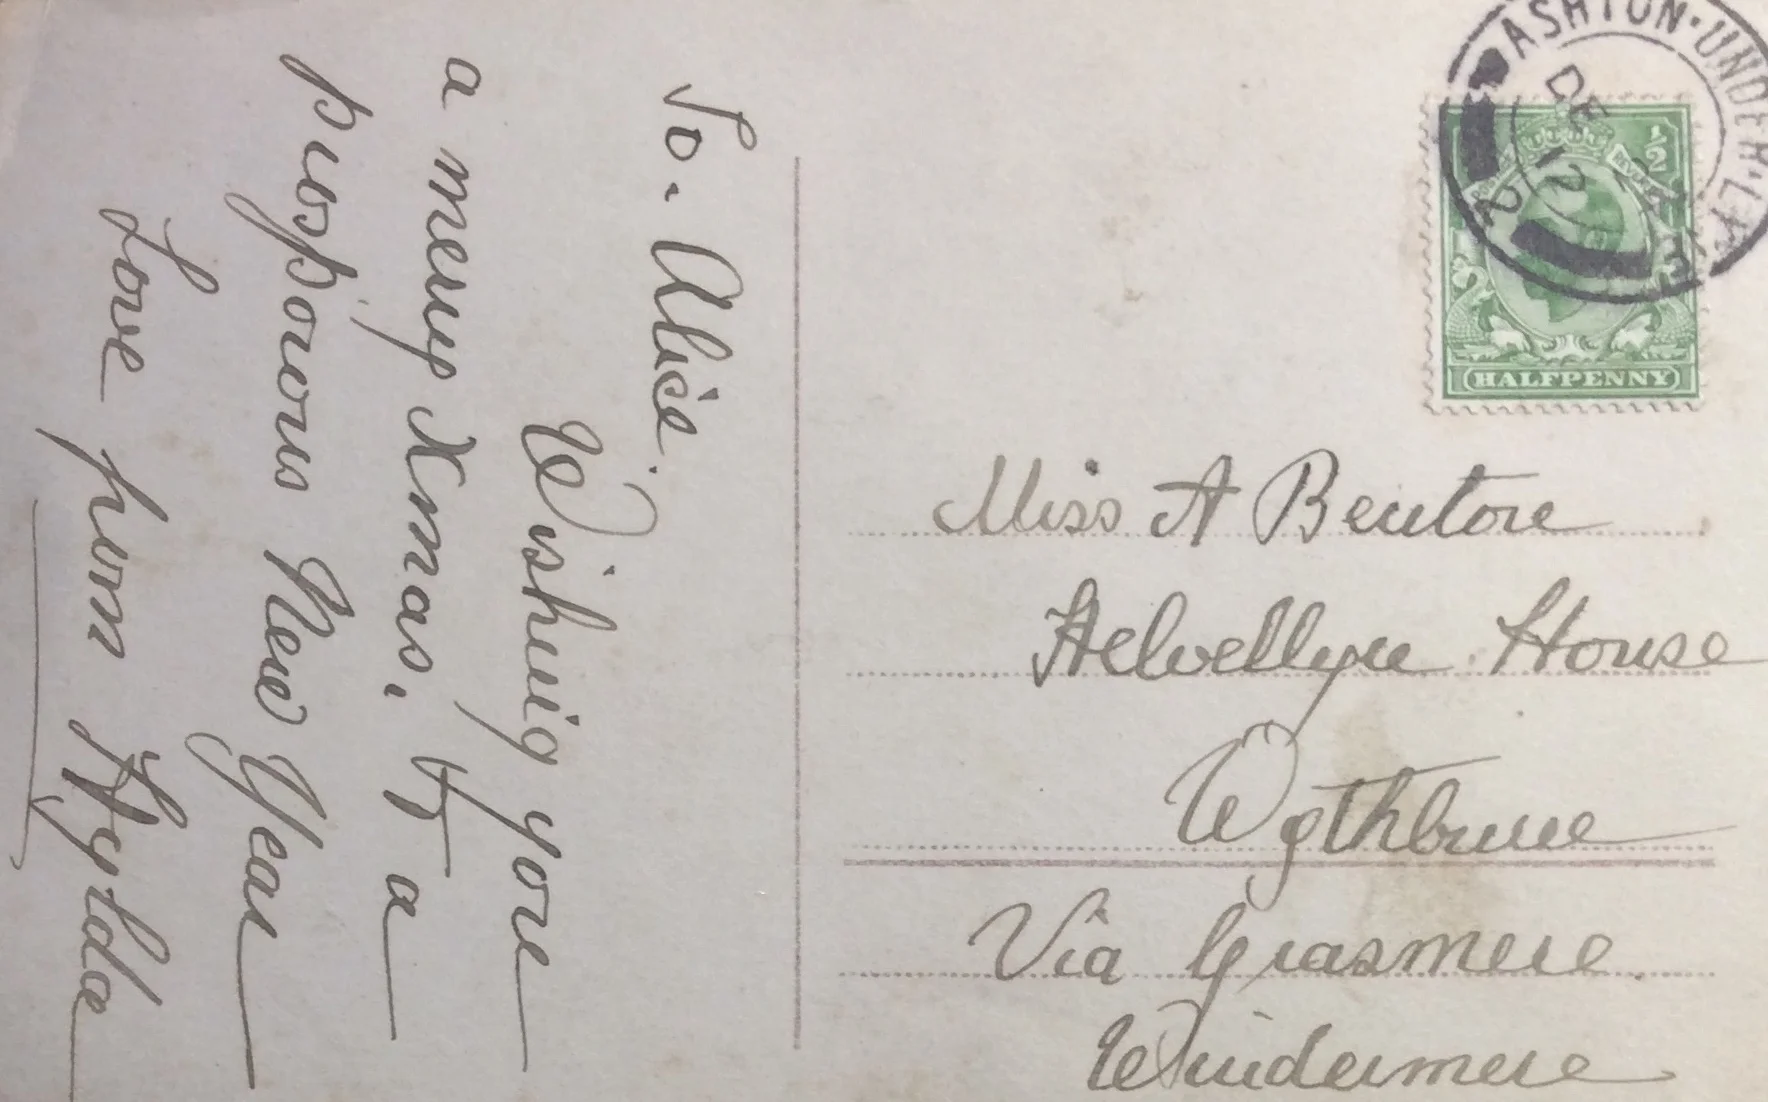 To. Alice.
Wishing you
a merry Xmas, & a
prosporous New Year
Love from Hylda
ASHTON-UNDER-LYNE
DE
12
HALFPENNY
½
Miss A Benton
Helvellyn House
Wythburn
Via Grasmere.
Windermere